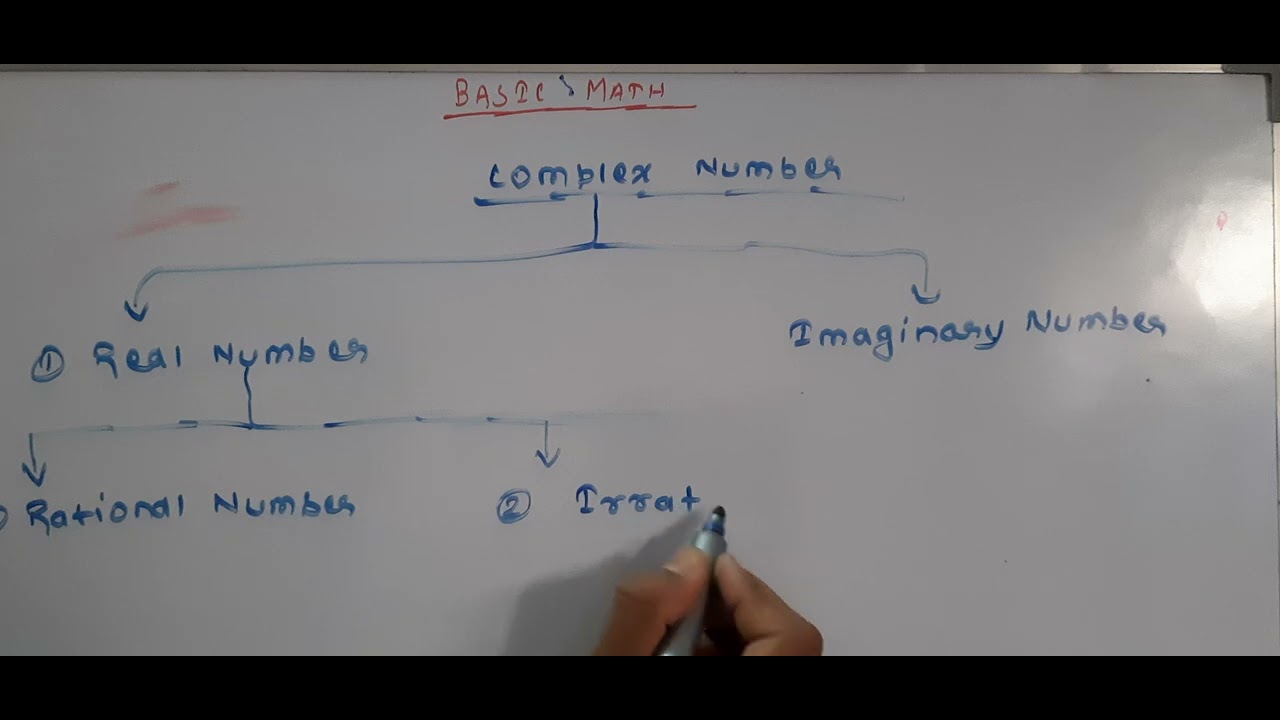 BASIC MATH
Complex Number
① Real Number
Imaginary Number
Rational Number
② Irrat